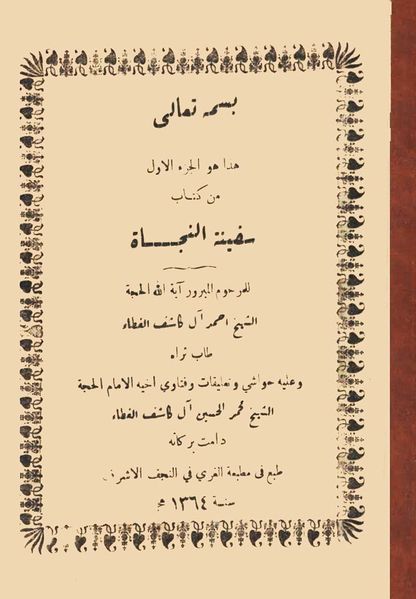 بسمه تعالى
هذا هو الجزء الاول
من كتاب
سفينة النجاة
للمرحوم المبرور آية الله الحجة
الشيخ احمد آل كاشف الغطاء
طاب ثراه
وعليه حواشي وتعليقات وفتاوي اخيه الامام الحجة
الشيخ محمد الحسين آل كاشف الغطاء
دامت بركاته
طبع في مطبعة الغري في النجف الاشرف
سنة ١٣٦٤ هج